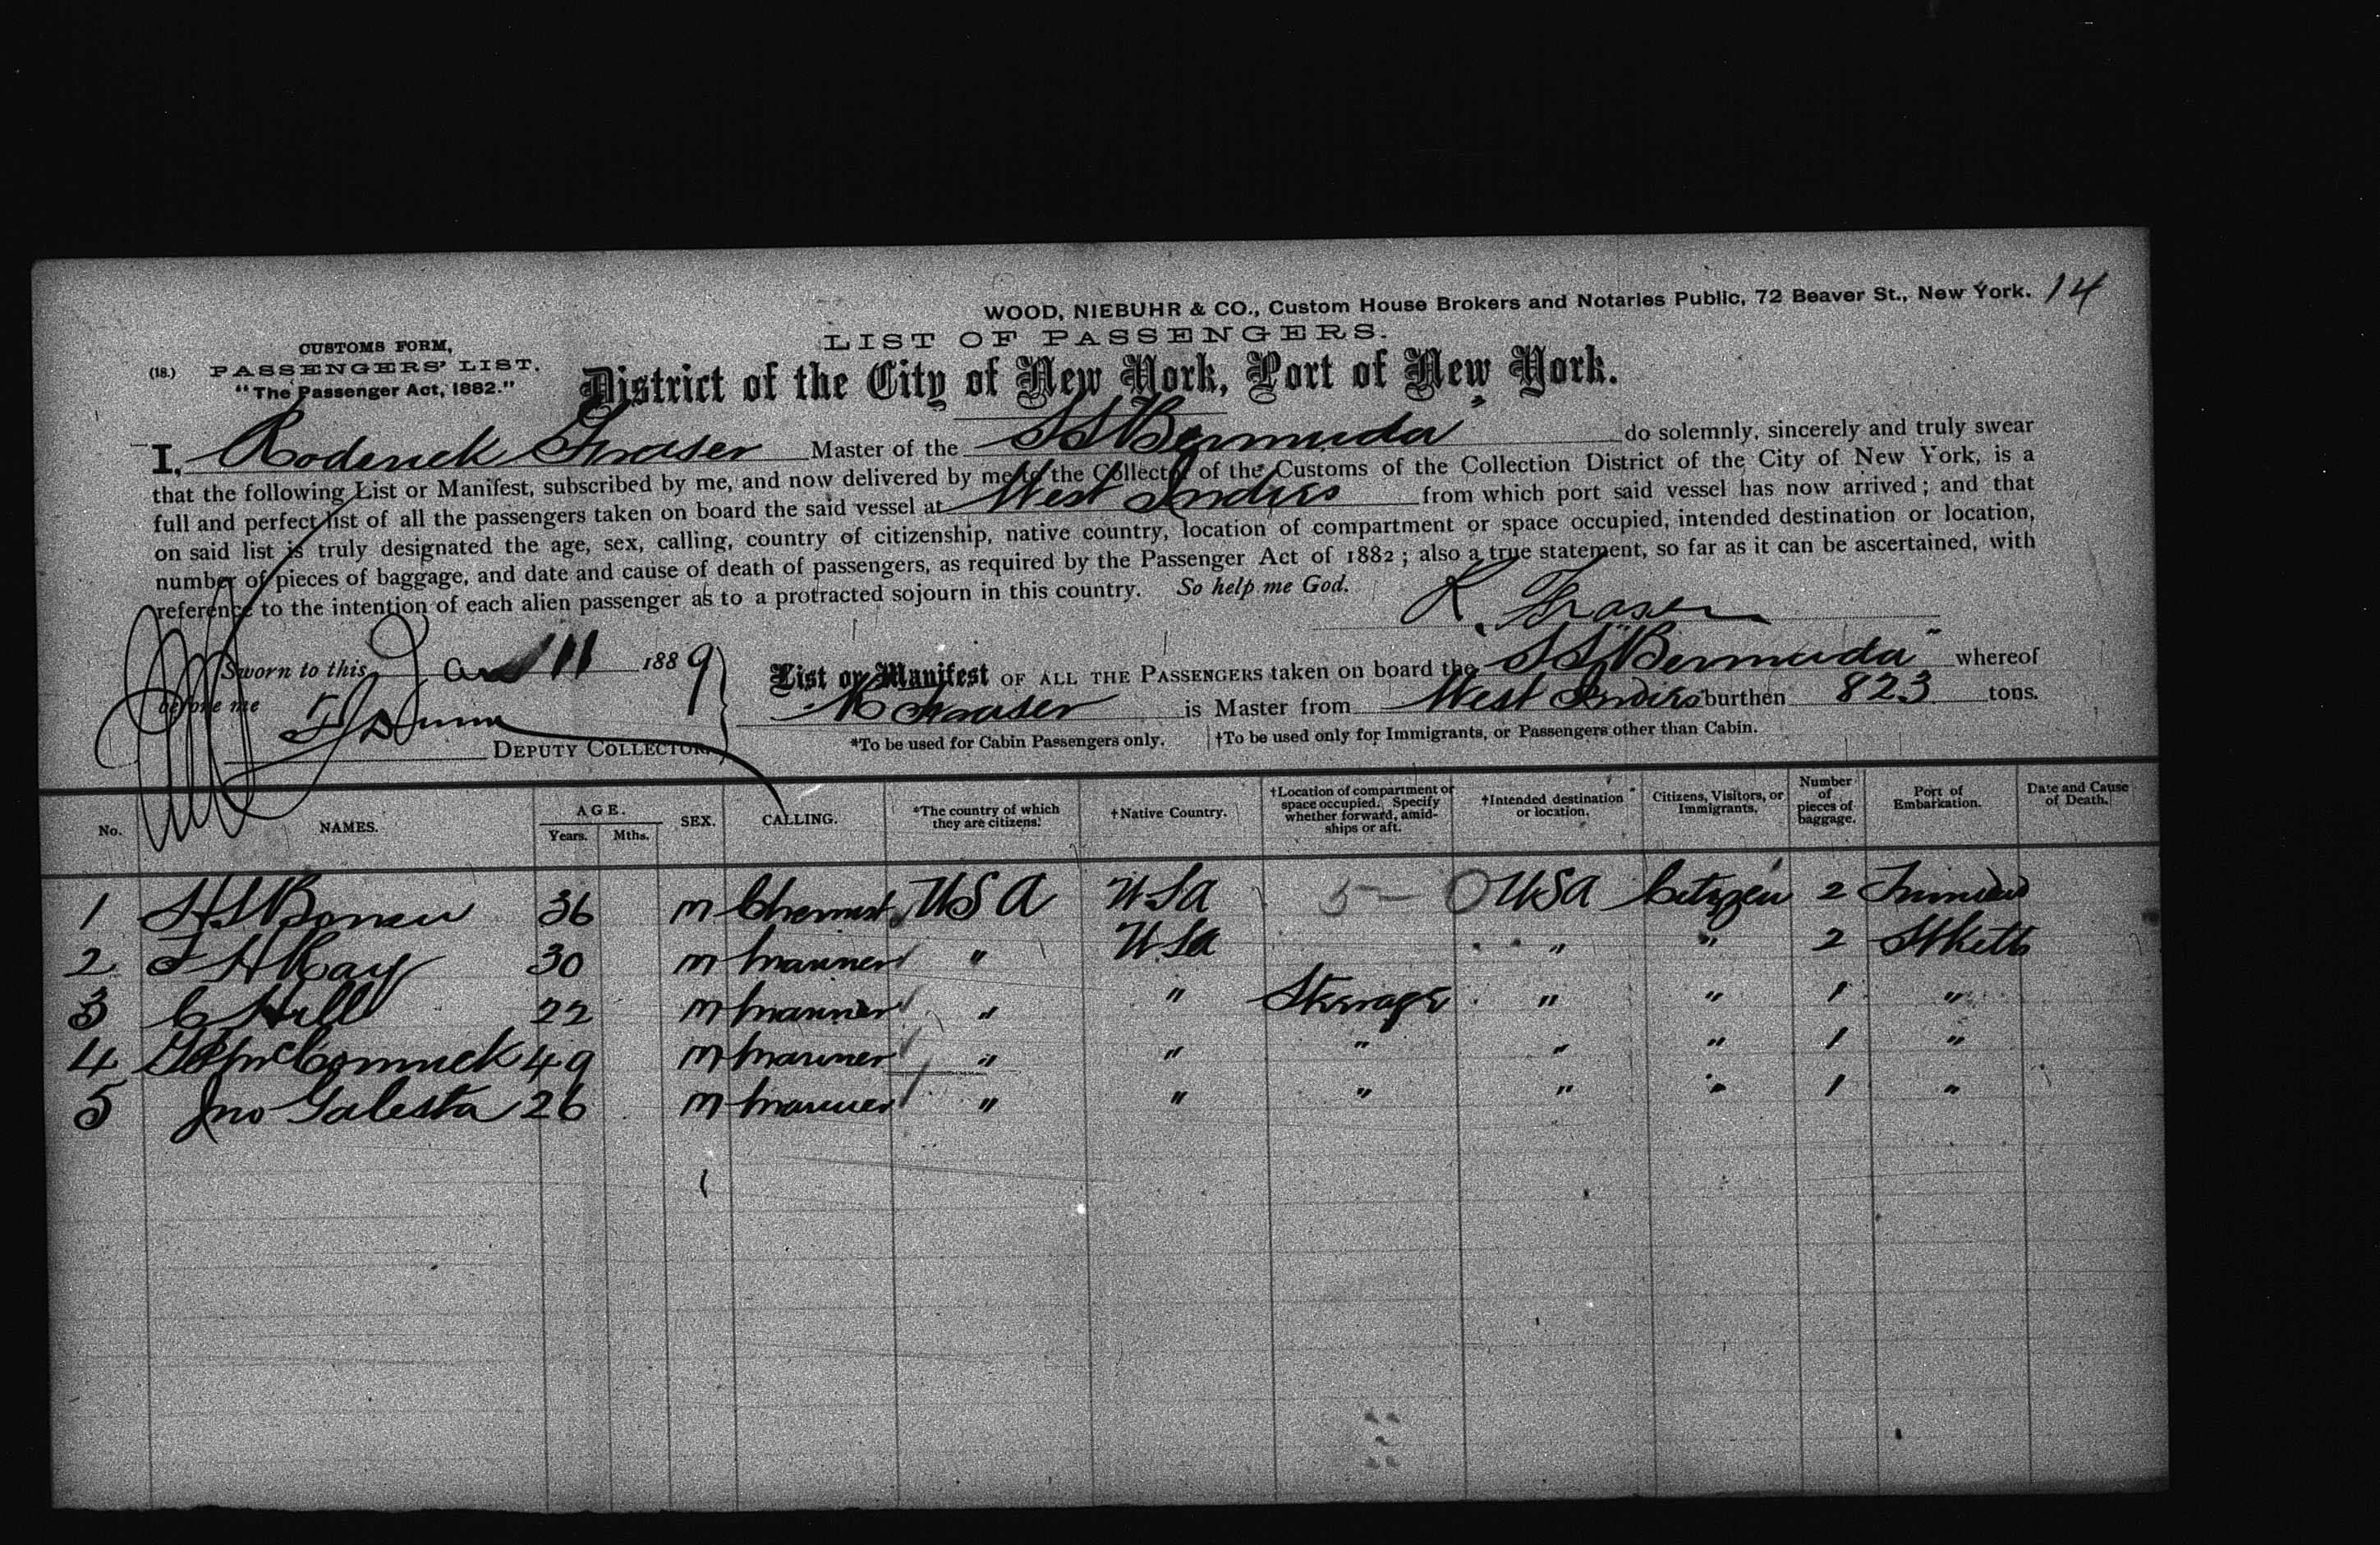 WOOD, NIEBUHR & CO., Custom House Brokers and Notaries Public, 72 Beaver St., New York. 14
LIST OF PASSENGERS.
CUSTOMS FORM,
(18.) PASSENGERS' LIST.
"The Passenger Act, 1882."
District of the City of New York, Port of New York.
I, Roderick Fraser Master of the SS Bermuda do solemnly, sincerely and truly swear
that the following List or Manifest, subscribed by me, and now delivered by me to the Collector of the Customs of the Collection District of the City of New York, is a
full and perfect list of all the passengers taken on board the said vessel at West Indies from which port said vessel has now arrived; and that
on said list is truly designated the age, sex, calling, country of citizenship, native country, location of compartment or space occupied, intended destination or location,
number of pieces of baggage, and date and cause of death of passengers, as required by the Passenger Act of 1882; also a true statement, so far as it can be ascertained, with
reference to the intention of each alien passenger as to a protracted sojourn in this country. So help me God.
R. Fraser
Sworn to this Jan 11 1889
before me
DEPUTY COLLECTOR.
List or Manifest OF ALL THE PASSENGERS taken on board the SS "Bermuda" whereof
R Fraser is Master from West Indies burthen 823 tons.
*To be used for Cabin Passengers only. †To be used only for Immigrants, or Passengers other than Cabin.
No. NAMES. AGE. Years. Mths. SEX. CALLING. *The country of which they are citizens. †Native Country. †Location of compartment or space occupied. Specify whether forward, amidships or aft. †Intended destination or location. Citizens, Visitors, or Immigrants. Number of pieces of baggage. Port of Embarkation. Date and Cause of Death.
1 36 m Chemist USA USA 5 — 0 USA Citizen 2 Trinidad
2 F H Ray 30 m mariner " USA " " 2 St Kitts
3 C Hill 22 m mariner " " Steerage " " 1 "
4 McCormick 49 m mariner " " " " " 1 "
5 Jno Galesta 26 m mariner " " " " " 1 "